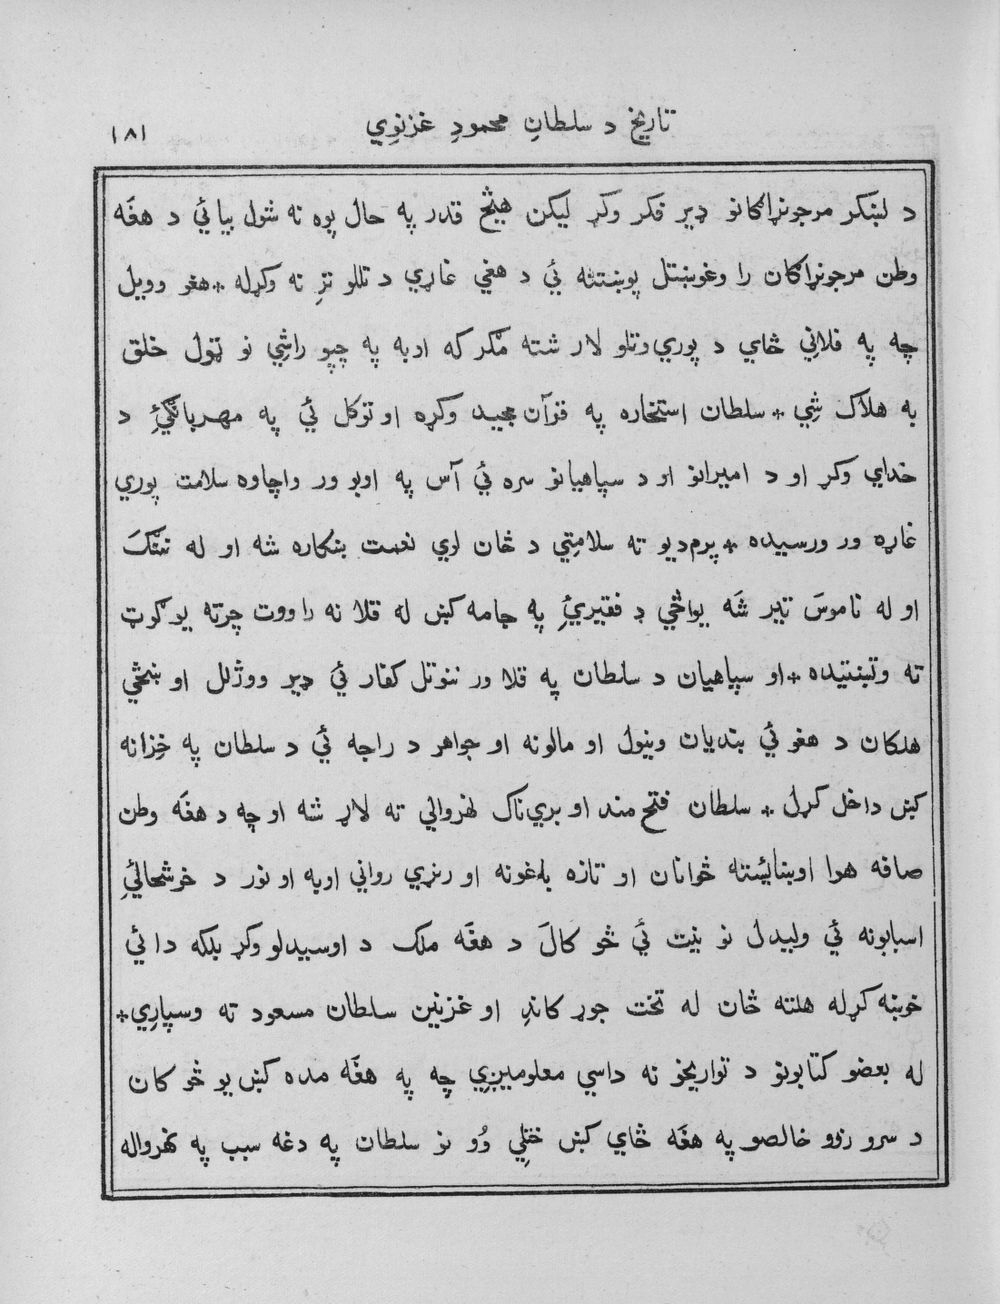 تاریخ د سلطانِ محمودِ غزنوِي ۱۸۱
د لښکر مرجونړاګانو ډیر فکر وکړ لیکن هیڅ قدر په حال پوه نه شول بیا ئي د هغَه
وطن مرجونړاګان را وغوښتل پوښتنه ئي د هغي غاړي د تللو ترِ نه وکړله * هغو وویل
چه په فلانِي ځاي د پوري وتلو لار شته مګر که اوبه په چپو راشِي نو ټول خلق
به هلاک شِي * سلطان استخاره په قرآن مجید وکړه او توکل ئي په مهربانګئِ د
خدایِ وکړ او د امیرانو او د سپاهیانو سره ئي آس په اوبو ور واچاوه سلامت پوري
غاړه ور ورسیده * پرمدیو ته سلامتِي د ځان لوي نعمت ښکاره شه او له ننګَ
او له ناموسَ تیر شَه یواځي د فقیرئِ په جامه کښ له قلا نه را ووت چرته یو ګوټ
ته وتښتیده * او سپاهیان د سلطان په قلا ور ننوتل کفار ئي ډیر ووژلل او ښځي
هلکان د هغو ئي بندیان ونیول او مالونه او جواهر د راجه ئي د سلطان په خِزانه
کښ داخل کړل * سلطان فتح مند او بري ناک نهروالي ته لاړ شه او چه د هغَه وطن
صافه هوا او ښایُسته ځوانان او تازه باغونه او رنړي رواني اوبه او نور د خوشحالئِ
اسبابونه ئي ولیدل نو نیت ئي څو کالَ د هغَه ملک د اوسیدلو وکړ بلکه دا ئي
خوښه کړله هلته ځان له تخت جوړ کاندِ او غزنین سلطان مسعود ته وسپارِي *
له بعضو کتابونو د تواریخو نه داسي معلومیږِي چه په هغَه مده کښ یو څو کان
د سرو زرو خالصو په هغَه ځاي کښ ختلِي وُو نو سلطان په دغه سبب په نهرواله